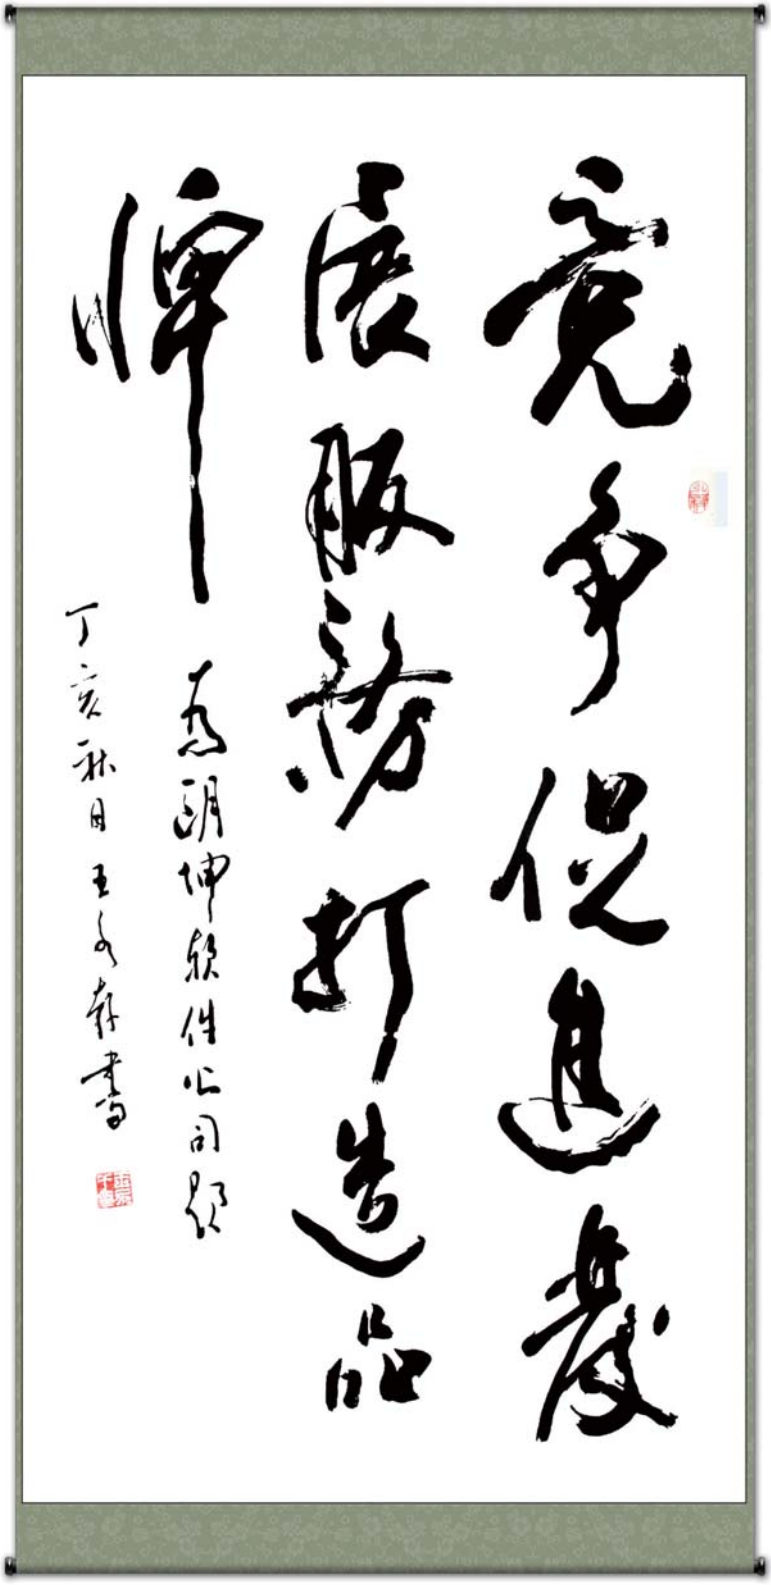 竞争促进发
展服务打造品
牌
为朗坤软件公司题
丁亥秋日王永群书